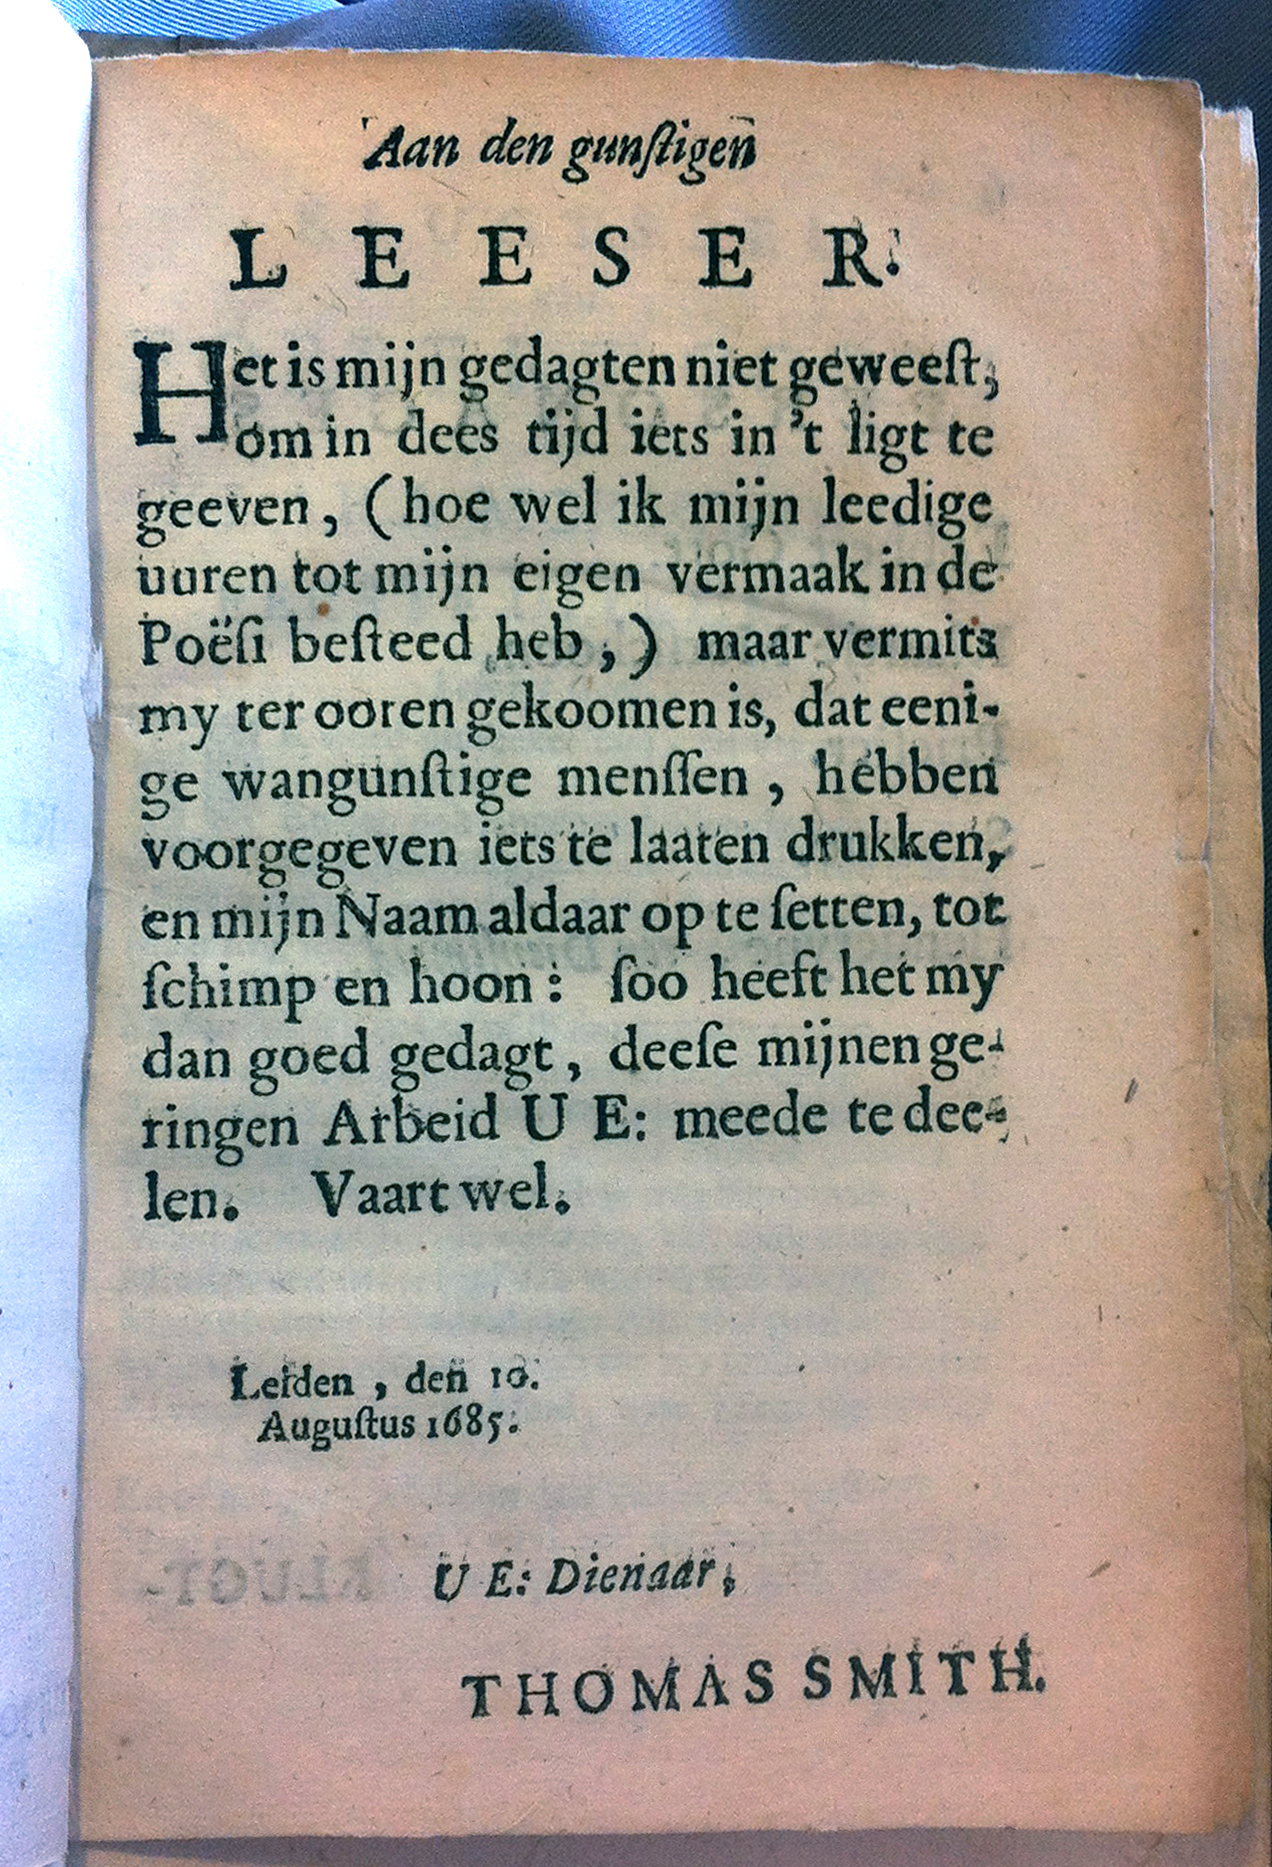 Aan den gunſtigen
LEESER.
Het is mijn gedagten niet geweeſt,
om in dees tijd iets in 't ligt te
geeven, (hoe wel ik mijn leedige
uuren tot mijn eigen vermaak in de
Poëſi beſteed heb,) maar vermits
my ter ooren gekoomen is, dat eeni-
ge wangunſtige menſſen, hebben
voorgegeven iets te laaten drukken,
en mijn Naam aldaar op te ſetten, tot
ſchimp en hoon: ſoo heeft het my
dan goed gedagt, deeſe mijnen ge-
ringen Arbeid U E: meede te dee-
len. Vaart wel.
Leiden, den 10.
Auguſtus 1685.
U E: Dienaar,
THOMAS SMITH.